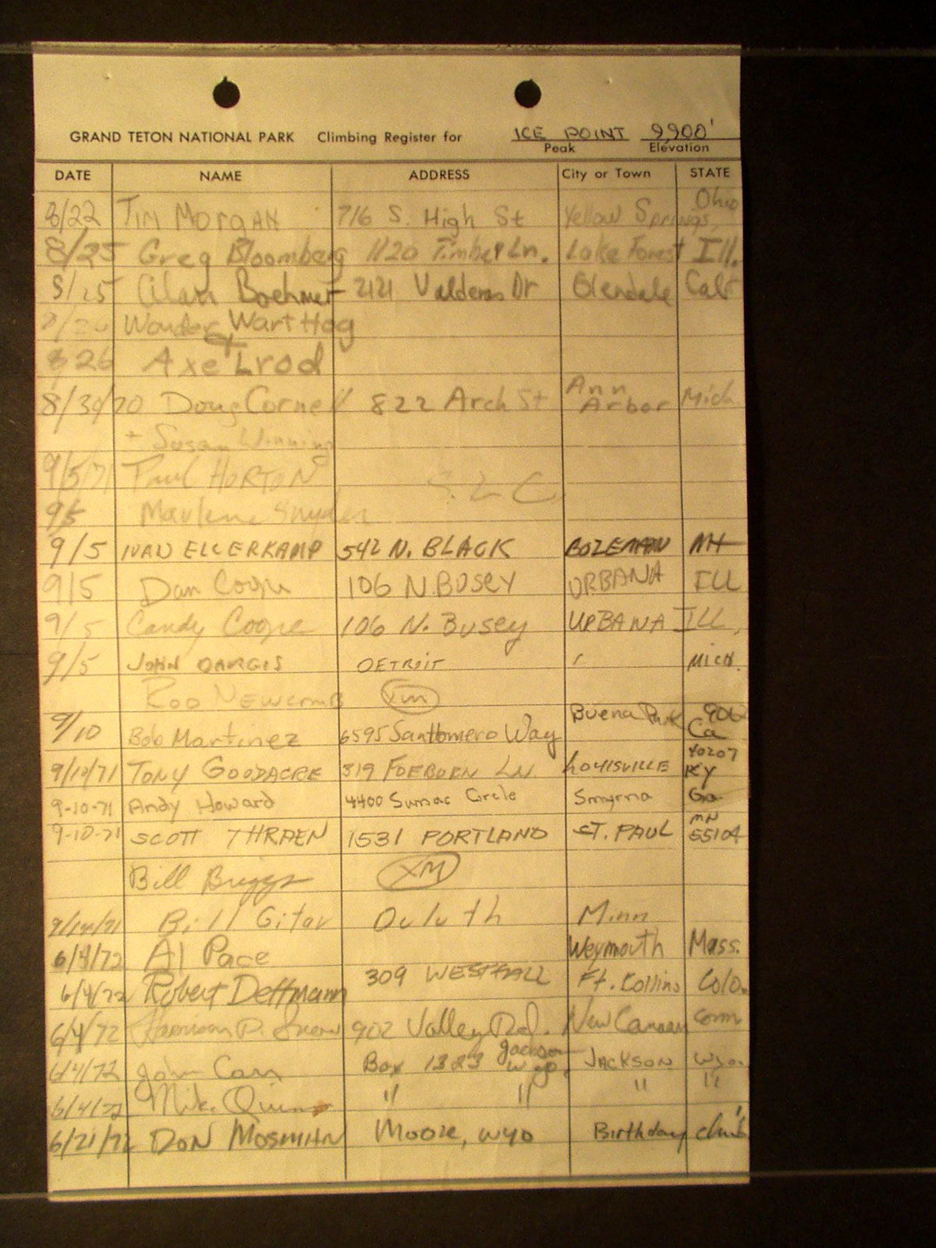 GRAND TETON NATIONAL PARK Climbing Register for ICE POINT 9900'
Peak Elevation
DATE NAME ADDRESS City or Town STATE
8/22 Tim Morgan 716 S. High St Yellow Springs, Ohio
8/25 Greg Bloomberg 1120 Timber Ln. Lake Forest Ill.
8/25 Alan Boehmer 2121 Valderas Dr Glendale Calif
8/26 Wonder Wart Hog
& 
8 26 Axe Lrod
8/30/70 Doug Cornell 822 Arch St Ann Arbor Mich
+ Susan Winning
9/5/71 Paul HORTON S.L.C.
9/5 Marlene Snyder
9/5 IVAN ELLERKAMP 542 N. BLACK BOZEMAN MT
9/5 Dan Cogie 106 N. BUSEY URBANA ILL
9/5 Candy Cogie 106 N. Busey URBANA ILL,
9/5 JOHN DARGIS DETROIT MICH.
Rod Newcomb XM
9/10 Bob Martinez 6595 Santomero Way Buena Park Ca
9/10/71 TONY GOODACRE 319 FOEBURN LN. LOUISVILLE KY 40207
9-10-71 Andy Howard 4400 Sumac Circle Smyrna Ga
9-10-71 SCOTT THRAEN 1531 PORTLAND ST. PAUL MN 55104
Bill Briggs XM
9/14/71 Bill Gitar Duluth Minn
6/4/72 Al Pace Weymouth Mass.
6/4/72 Robert Dettmann 309 WESTFALL Ft. Collins Colo.
6/4/72 Harrison P. Snow 902 Valley Rd. New Canaan Conn
6/4/72 John Carr Box 1323 Jackson Wyo. JACKSON Wyo.
6/4/72 Mike Quinn " " " "
6/21/72 DON MOSMAN Moose, WYO Birthday climb!